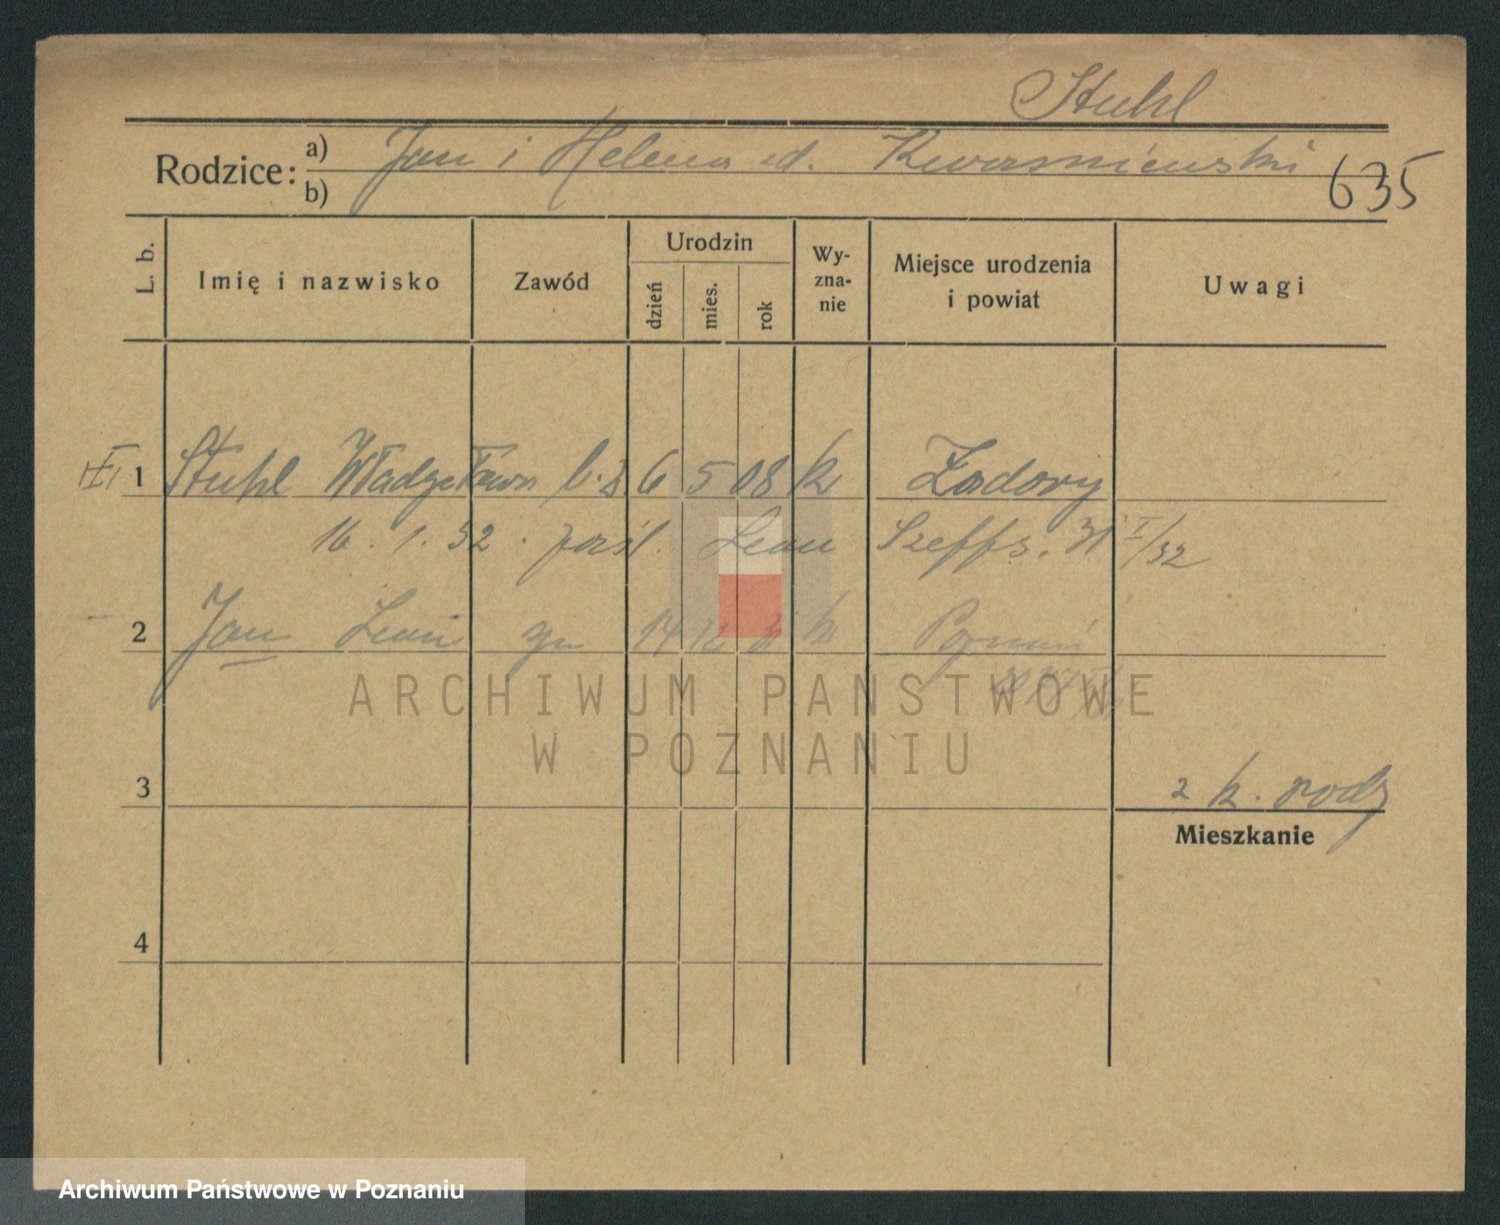 Stuhl
Rodzice: a) Jan i Helena Kwasniewski
b)
635
L. b. Imię i nazwisko Zawód Urodzin dzień mies. rok Wy-zna-nie Miejsce urodzenia i powiat Uwagi
1 Stuhl Władysława b. z 6 5 08 k Zadory
16. 1. 32. Leon Szeffs. 31 I/32
2 Jan Leon 14 k Poznań
ARCHIWUM PAŃSTWOWE
W POZNANIU
3 2 k. rodz
Mieszkanie
4
Archiwum Państwowe w Poznaniu